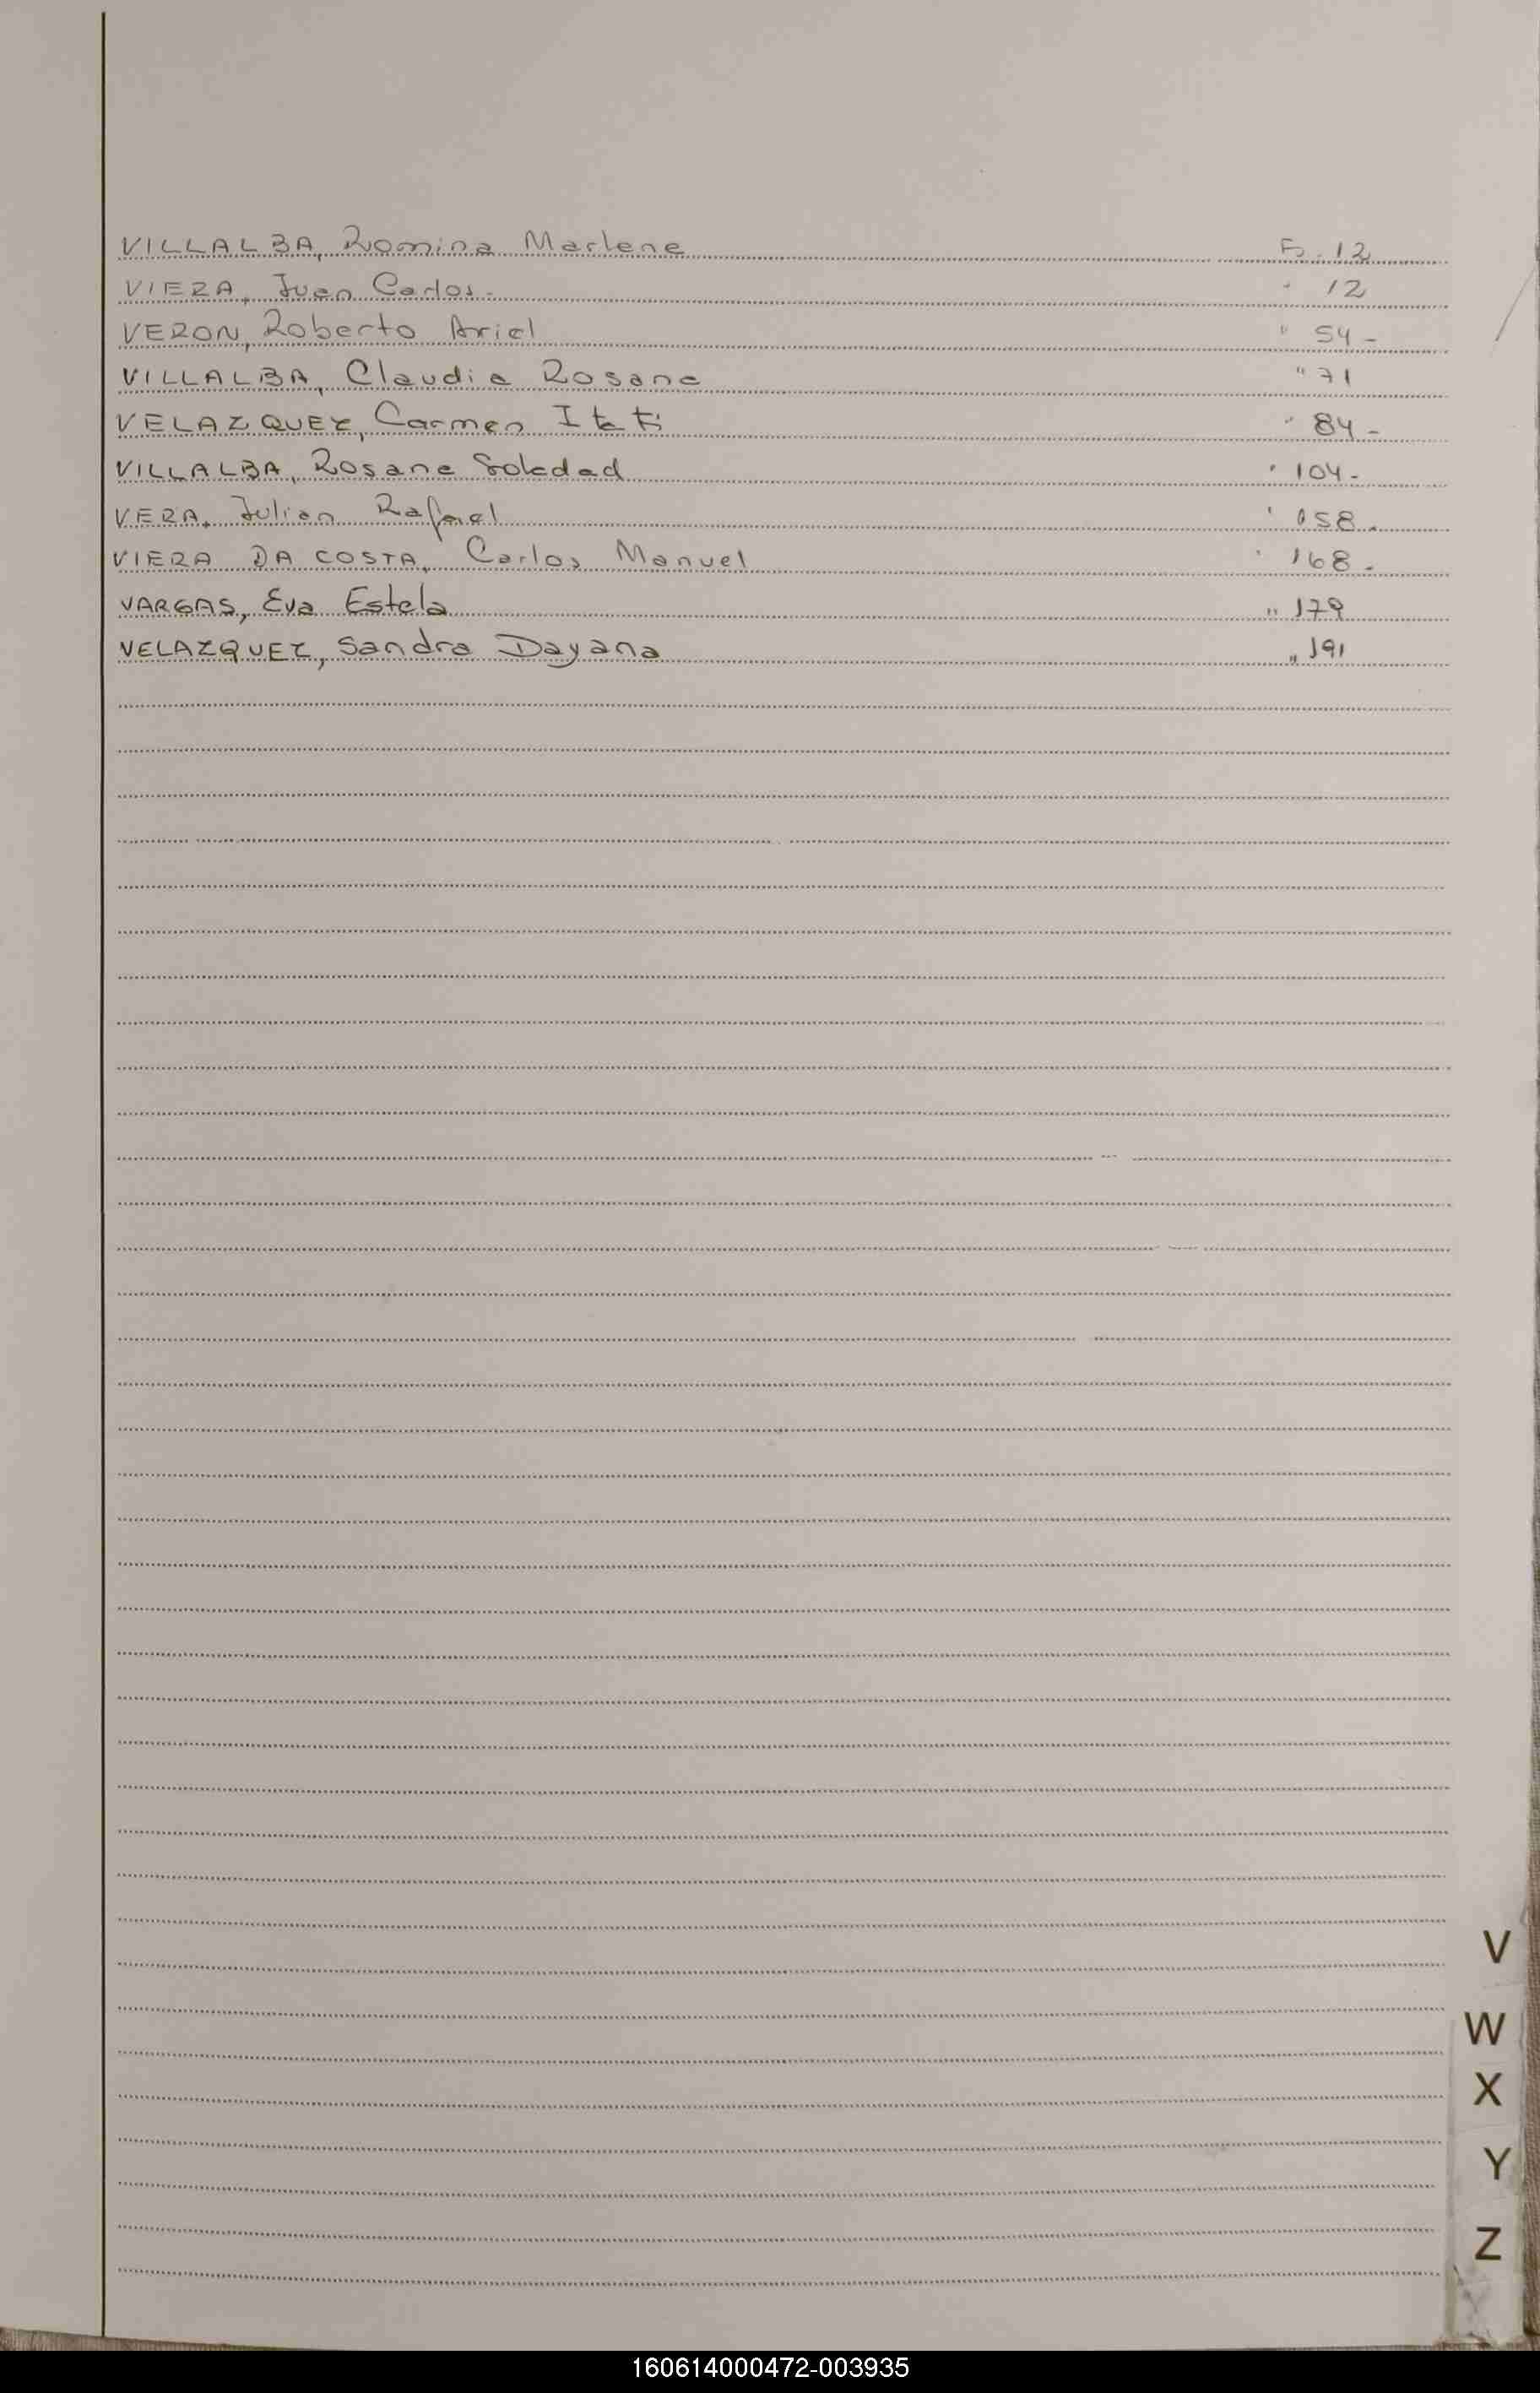 VILLALBA, Romina Marlene Fo. 12
VIERA, Juan Carlos. " 12
VERON, Roberto Ariel " 54 -
VILLALBA, Claudia Rosana " 71
VELAZQUEZ, Carmen Itatí " 84 -
VILLALBA, Rosana Soledad " 104 -
VERA, Julian Rafael " 158.
VIERA DA COSTA, Carlos Manuel " 168.
VARGAS, Eva Estela " 179
VELAZQUEZ, Sandra Dayana " 191
V
W
X
Y
Z
160614000472-003935